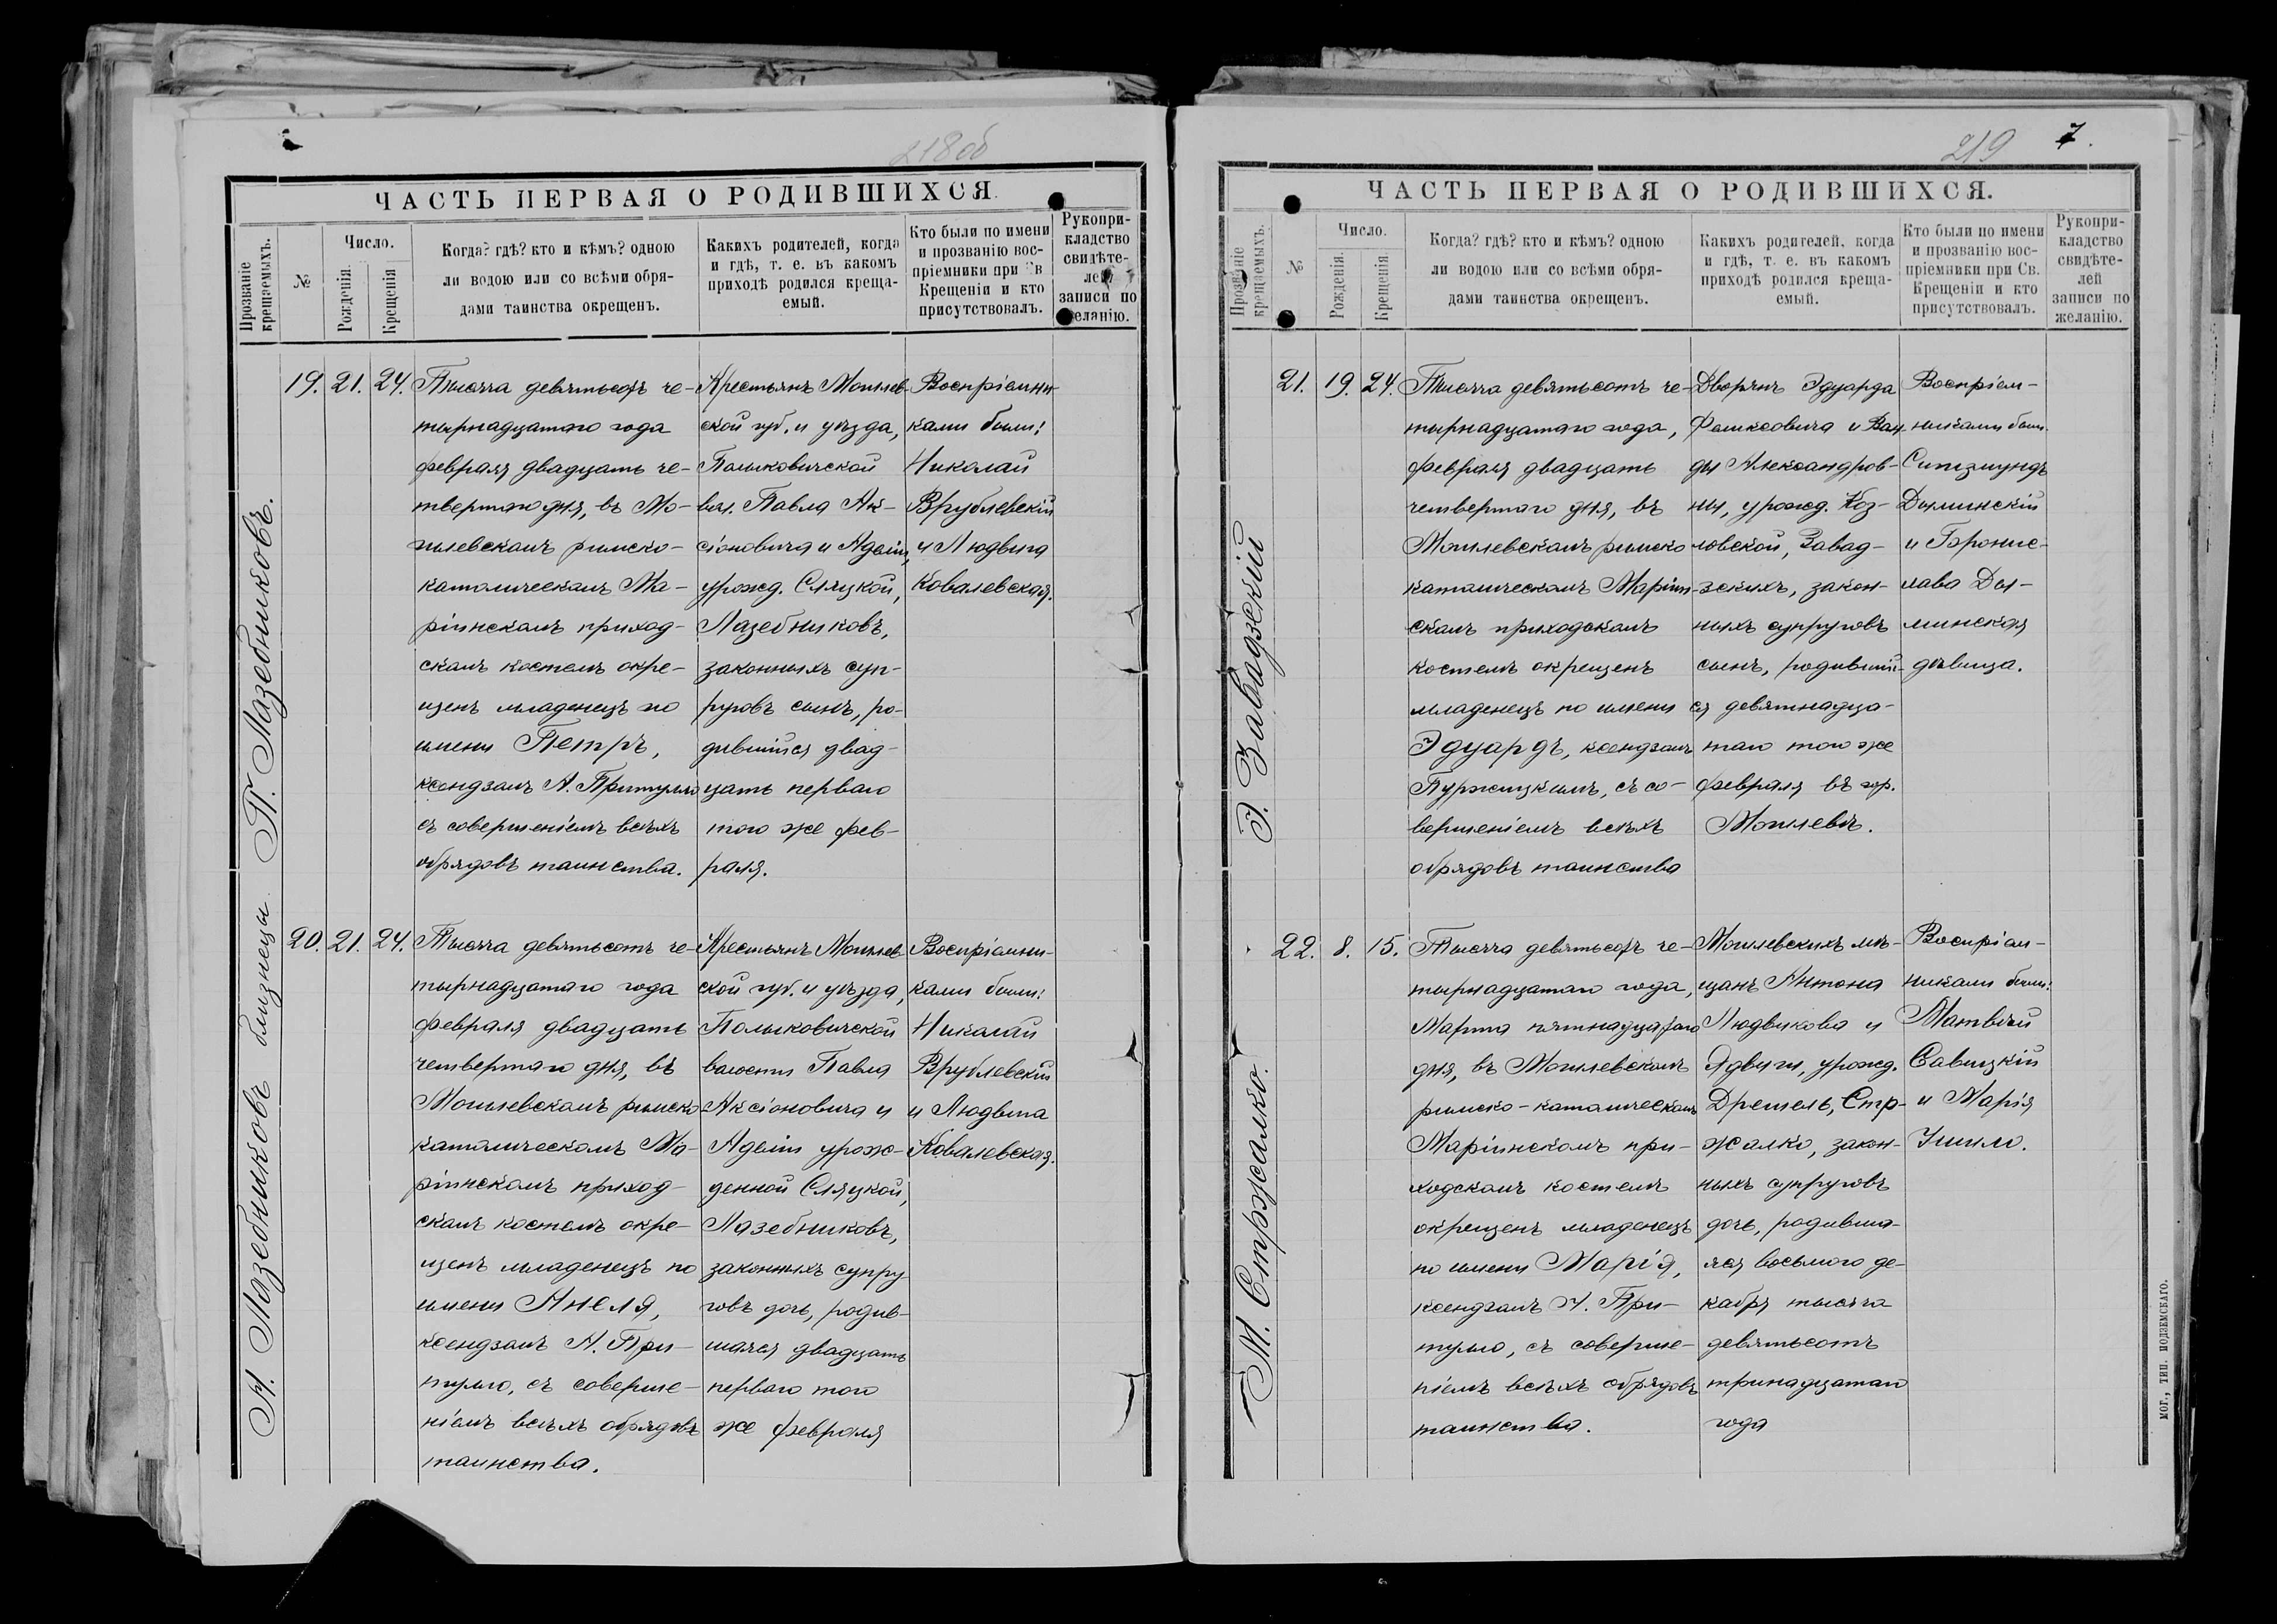 218об
ЧАСТЬ ПЕРВАЯ О РОДИВШИХСЯ.
Прозваніе крещаемыхъ.
№
Число.
Рожденія.
Крещенія
Когда? гдѣ? кто и кѣмъ? одною
ли водою или со всѣми обря-
дами таинства окрещенъ.
Какихъ родителей, когда
и гдѣ, т. е. въ какомъ
приходѣ родился креща-
емый.
Кто были по имени
и прозванію вос-
пріемники при Св
Крещеніи и кто
присутствовалъ.
Рукопри-
кладство
свидѣте-
лей
записи по
желанію.
П. Лазебниковъ.
19. 21. 24.
Тысяча девятьсотъ че-
тырнадцатаго года
февраля двадцать че-
твертаго дня, въ Мо-
гилевскомъ римско-
католическомъ Ма-
ріинскомъ приход-
скомъ костелѣ окре-
щенъ младенецъ по
имени Петръ,
ксендзомъ А. Притулло
съ совершеніемъ всѣхъ
обрядовъ таинства.
Крестьянъ Могилев-
ской губ. и уѣзда,
Полыковичской
вол. Павла Ак-
сіоновича и Аделіи,
урожд. Сляцкой,
Лазебниковъ,
законныхъ суп-
руговъ сынъ, ро-
дившійся двад-
цать перваго
того же фев-
раля.
Воспріемни-
ками были:
Николай
Врублевскій
и Людвига
Ковалевская.
А. Лазебниковъ близнецы
20. 21. 24.
Тысяча девятьсотъ че-
тырнадцатаго года
февраля двадцать
четвертаго дня, въ
Могилевскомъ римско-
католическомъ Ма-
ріинскомъ приход-
скомъ костелѣ окре-
щенъ младенецъ по
имени Анеля,
ксендзомъ А. При-
тулло, съ соверше-
ніемъ всѣхъ обрядовъ
таинства.
Крестьянъ Могилев-
ской губ. и уѣзда,
Полыковичской
волости Павла
Аксіоновича и
Аделіи урож-
денной Сляцкой,
Лазебниковъ,
законныхъ супру-
говъ дочь, родив-
шаяся двадцать
перваго того
же февраля
Воспріемни-
ками были:
Николай
Врублевскій
и Людвига
Ковалевская.
219 7.
ЧАСТЬ ПЕРВАЯ О РОДИВШИХСЯ.
Прозваніе крещаемыхъ.
№
Число.
Рожденія.
Крещенія.
Когда? гдѣ? кто и кѣмъ? одною
ли водою или со всѣми обря-
дами таинства окрещенъ.
Какихъ родителей, когда
и гдѣ, т. е. въ какомъ
приходѣ родился креща-
емый.
Кто были по имени
и прозванію вос-
пріемники при Св.
Крещеніи и кто
присутствовалъ.
Рукопри-
кладство
свидѣте-
лей
записи по
желанію.
Э. Завадзскій
21. 19. 24.
Тысяча девятьсотъ че-
тырнадцатаго года,
февраля двадцать
четвертаго дня, въ
Могилевскомъ римско
католическомъ Маріин-
скомъ приходскомъ
костелѣ окрещенъ
младенецъ по имени
Эдуардъ, ксендзомъ
Пуржицкимъ, съ со-
вершеніемъ всѣхъ
обрядовъ таинства
Дворянъ Эдуарда
Феликсовича и Ван-
ды Александров-
ны, урожд. Коз-
ловской, Завад-
зскихъ, закон-
ныхъ супруговъ
сынъ, родившій-
ся девятнадца-
таго того же
февраля въ гор.
Могилевѣ.
Воспріем-
никами были
Сигизмундъ
Дыминскій
и Броние-
лава Ды-
минская
дѣвица.
М. Стржалко.
22. 8. 15.
Тысяча девятьсотъ че-
тырнадцатаго года,
Марта пятнадцатаго
дня, въ Могилевскомъ
римско-католическомъ
Маріинскомъ при-
ходскомъ костелѣ
окрещенъ младенецъ
по имени Марія,
ксендзомъ А. При-
тулло, съ соверше-
ніемъ всѣхъ обрядовъ
таинства.
Могилевскихъ мѣ-
щанъ Антона
Людвикова и
Ядвиги, урожд.
Дрешель, Стр-
жалко, закон-
ныхъ супруговъ
дочь, родивша-
яся восьмого де-
кабря тысяча
девятьсотъ
тринадцатаго
года
Воспріем-
никами были:
Матвѣй
Савицкій
и Марія
МОГ., ТИП. ПОДЗЕМСКАГО.